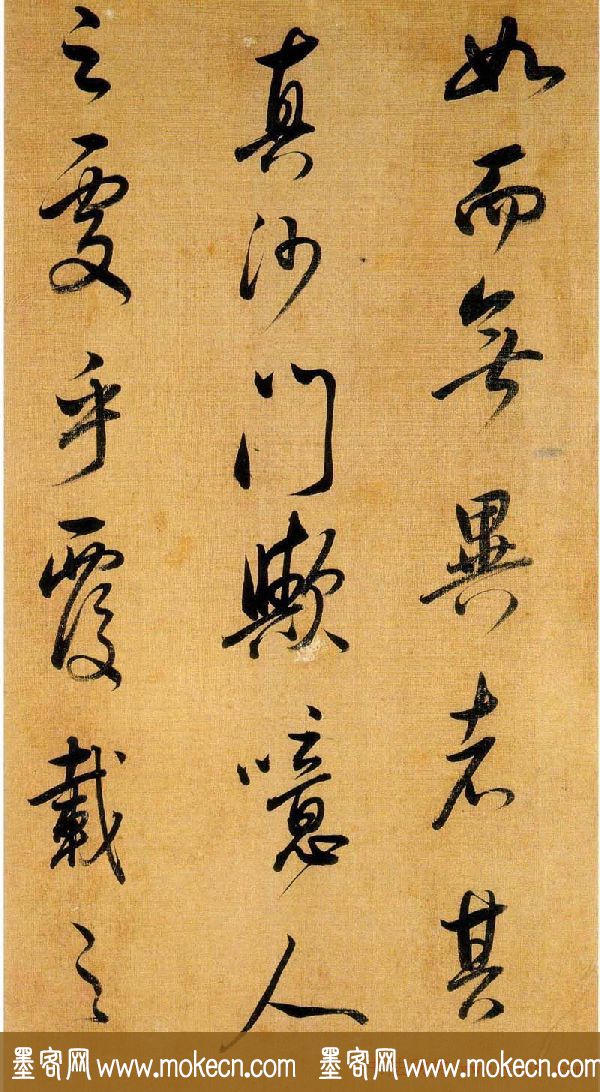 如而無異者其
真沙門歟噫人
之處乎覆載之
墨客网 www.mokecn.com 墨客网 www.mokecn.com